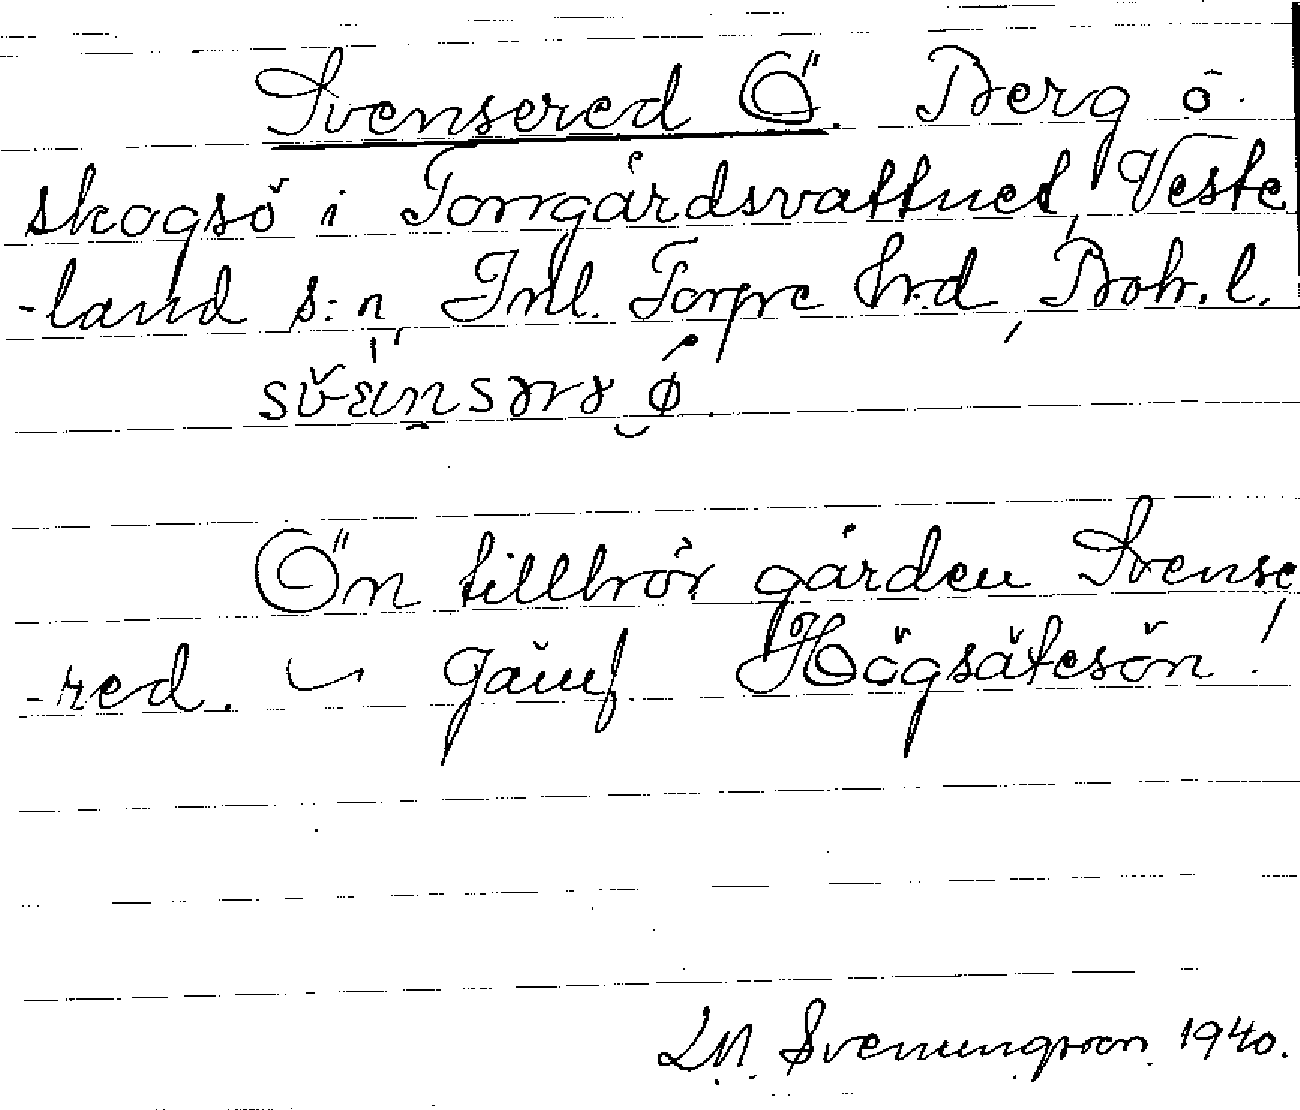 Svensered Ö. Berg o.
skogsö i Torrgårdsvattnet, Veste
-land s:n, Inl. Torpe hrd, Boh. l.
Ön tillhör gården Svense
-red. – Jämf. Högsätesön!
Svenungsson 1940.